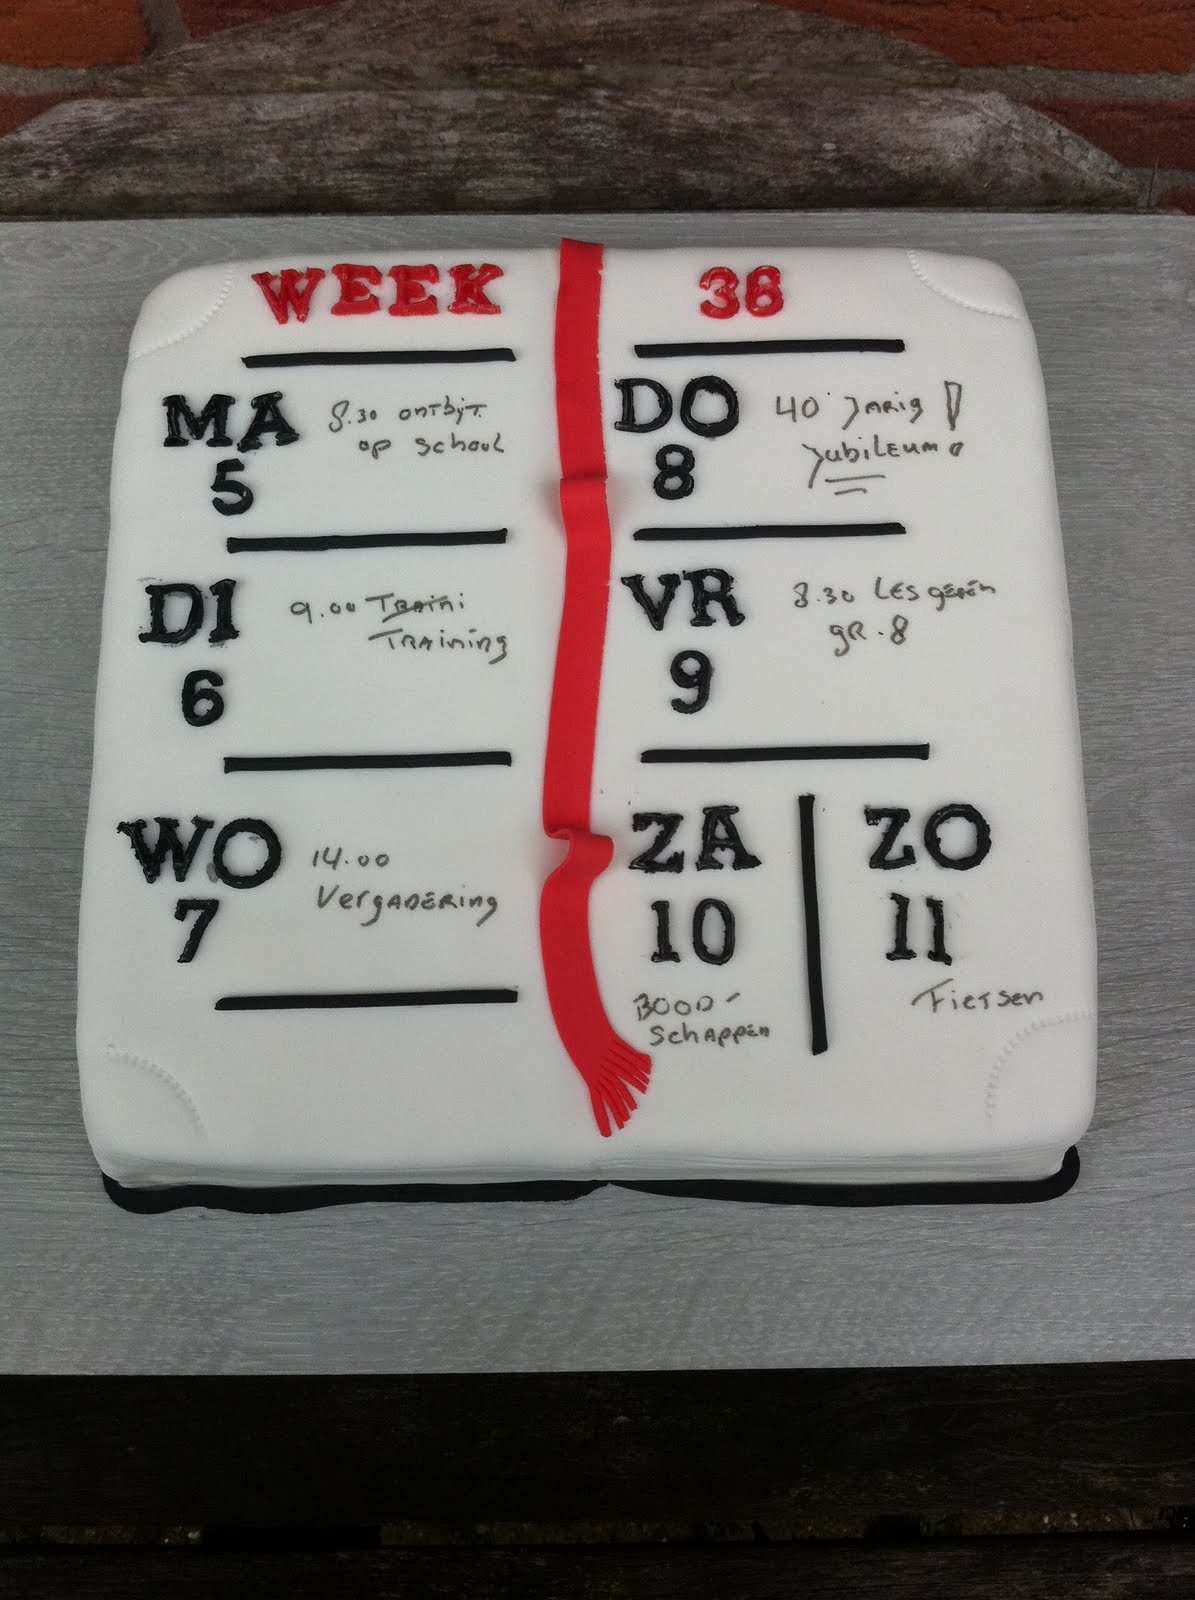 WEEK 36
MA 8.30 ontbijt
op school
5
DI 9.00 Traini
Training
6
WO 14.00
Vergadering
7
DO 40 jarig !
Jubileum
8
VR 8.30 Lesgeven
gr. 8
9
ZA
10
Bood-
schappen
ZO
11
Fietsen